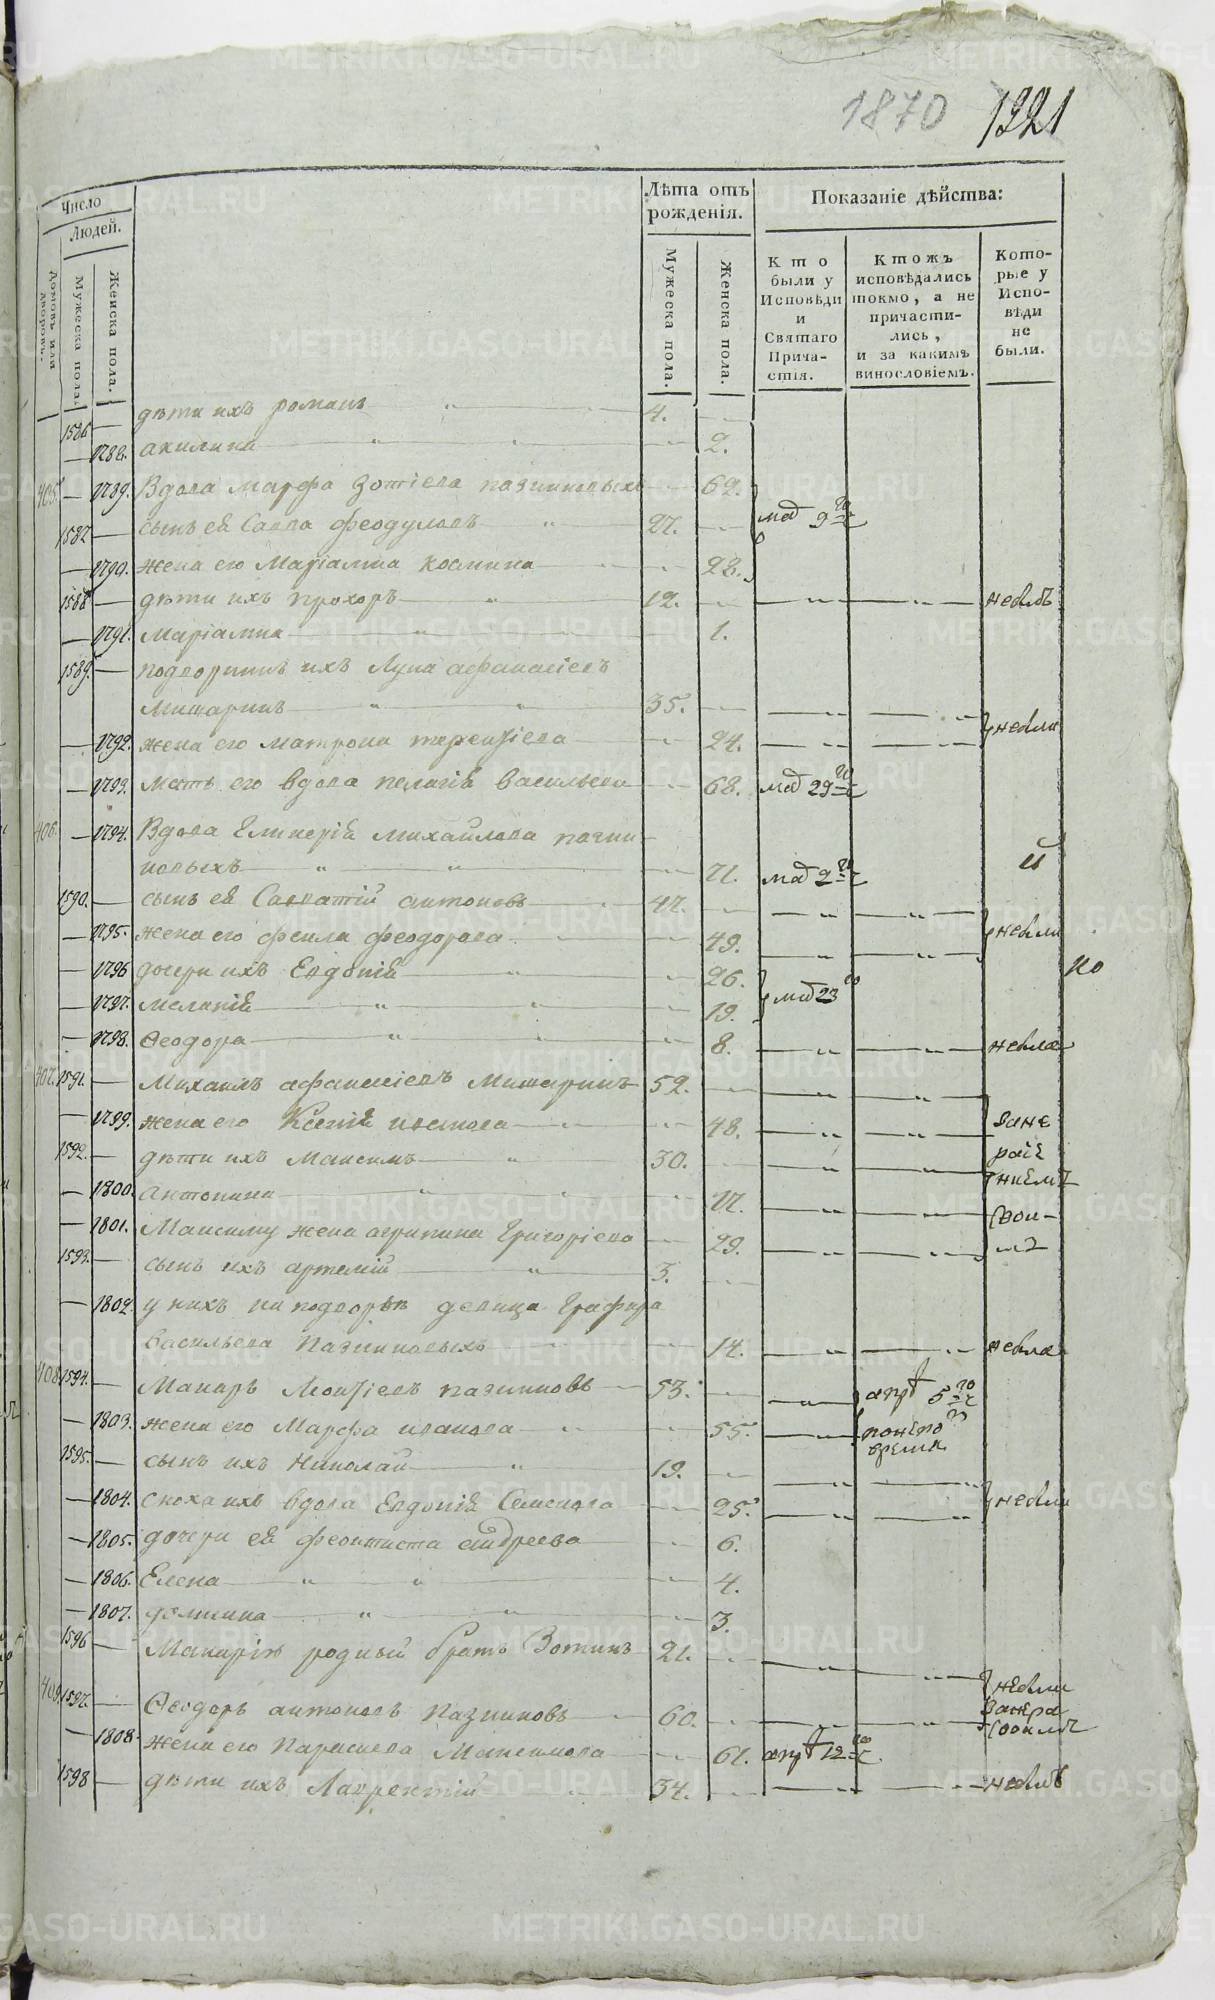 1870 1221
Число
Людей.
Домовъ или дворовъ.
Мужеска пола.
Женска пола.
Лѣта отъ рожденія.
Мужеска пола.
Женска пола.
Показаніе дѣйства:
Кто были у Исповѣди и Святаго Прича-стія.
Ктожъ исповѣдались токмо, а не причасти-лись, и за какимъ винословіемъ.
Кото-рые у Испо-вѣди не были.
1586 — дѣти ихъ романъ 4.
— 1788. акилина 2.
405 — 1789. Вдова Марфа Зотіева пазниковыхъ 69.
1587 — сынъ ея Савва феодуловъ 27. маӥ 9го
— 1790. жена его Маріамна космина 28.
1588 — дѣти ихъ прохоръ 12.
— 1791. Маріамна 1.
1589. — подворникъ ихъ Лука афанасіевъ
Мишаринъ 35.
— 1792. жена его матрона терентіева 24.
— 1793. мать его вдова пелагія васильева 68. 29го
406. — 1794. Вдова Гликерія михайлова пазни
ковыхъ 71. 2го
1590. — сынъ ея Савватій антоновъ 47.
— 1795. жена его фекла феодорова 49.
— 1796 дочери ихъ Евдокія 26.
— 1797. меланія 19. 23го
— 1798. Ѳеодора 8.
407. 1591. — Михаилъ афанасіевъ Мишаринъ 52.
— 1799. жена его Ксенія иванова 48.
1592. — дѣти ихъ Максимъ 30.
— 1800. антонина 17.
— 1801. Максиму жена агрипина Григоріева 29.
1593. — сынъ ихъ артемій 3.
— 1802. у нихъ на подворьѣ девица Графира
васильева Пазниковыхъ 14.
408. 1594. — Макаръ Леонтіевъ пазниковъ 53. апр 5го
— 1803. жена его Марфа иванова 55.
время
1595. — сынъ ихъ Николай 19.
— 1804. сноха ихъ вдова Евдокія Семенова 25.
— 1805. дочери ея феоктиста андреева 6.
— 1806. Елена 4.
— 1807. 3.
1596 — Макарію родный братъ Зотикъ 21.
409. 1597. — Ѳеодоръ антоновъ Пазниковъ 60.
— 1808. жена его Параскева Максимова 61. апр 12го
1598 — дѣти ихъ Лаврентій 34.
METRIKI.GASO-URAL.RU